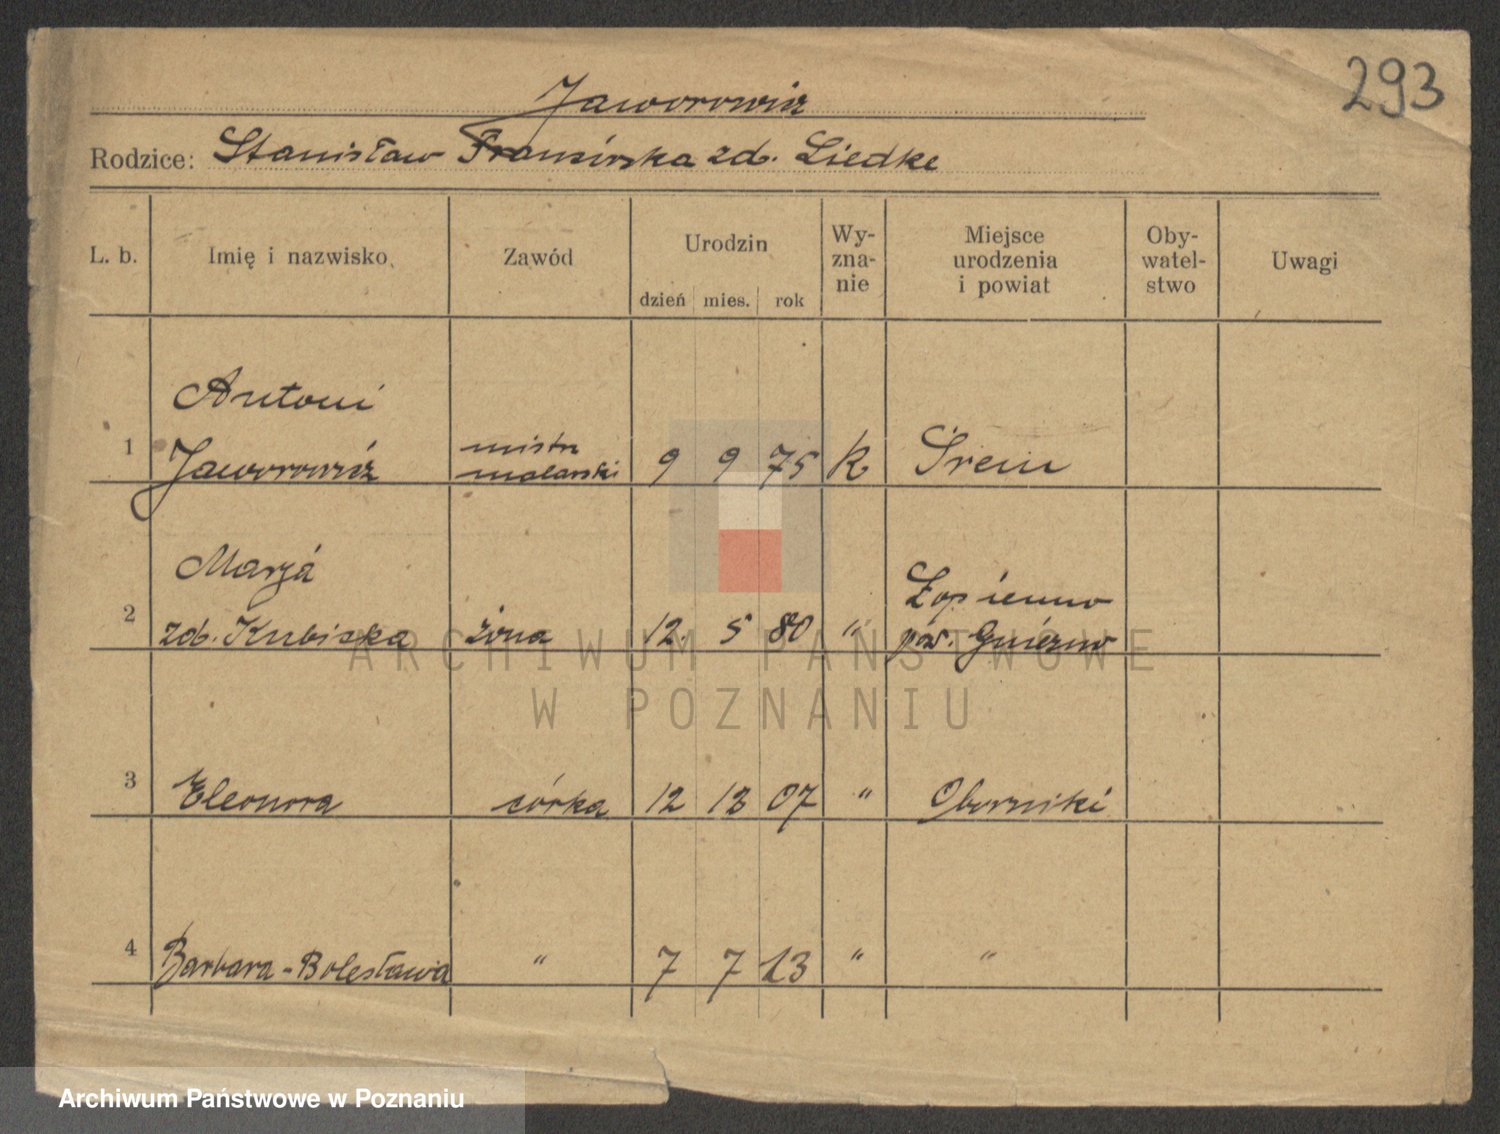 293
Jaworowicz
Rodzice: Stanisław Franciszka zd. Liedke
L. b. Imię i nazwisko Zawód Urodzin dzień mies. rok Wy-zna-nie Miejsce urodzenia i powiat Oby-watel-stwo Uwagi
Antoni
1 Jaworowicz mistrz malarski 9 9 75 k Śrem
Marja
2 zd. Kubicka żona 12. 5 80 " Łopienno pow. Gniezno
3 Eleonora córka 12 12 07 " Oborniki
4 Barbara-Bolesława " 7 7 13 " "
ARCHIWUM PAŃSTWOWE
W POZNANIU
Archiwum Państwowe w Poznaniu